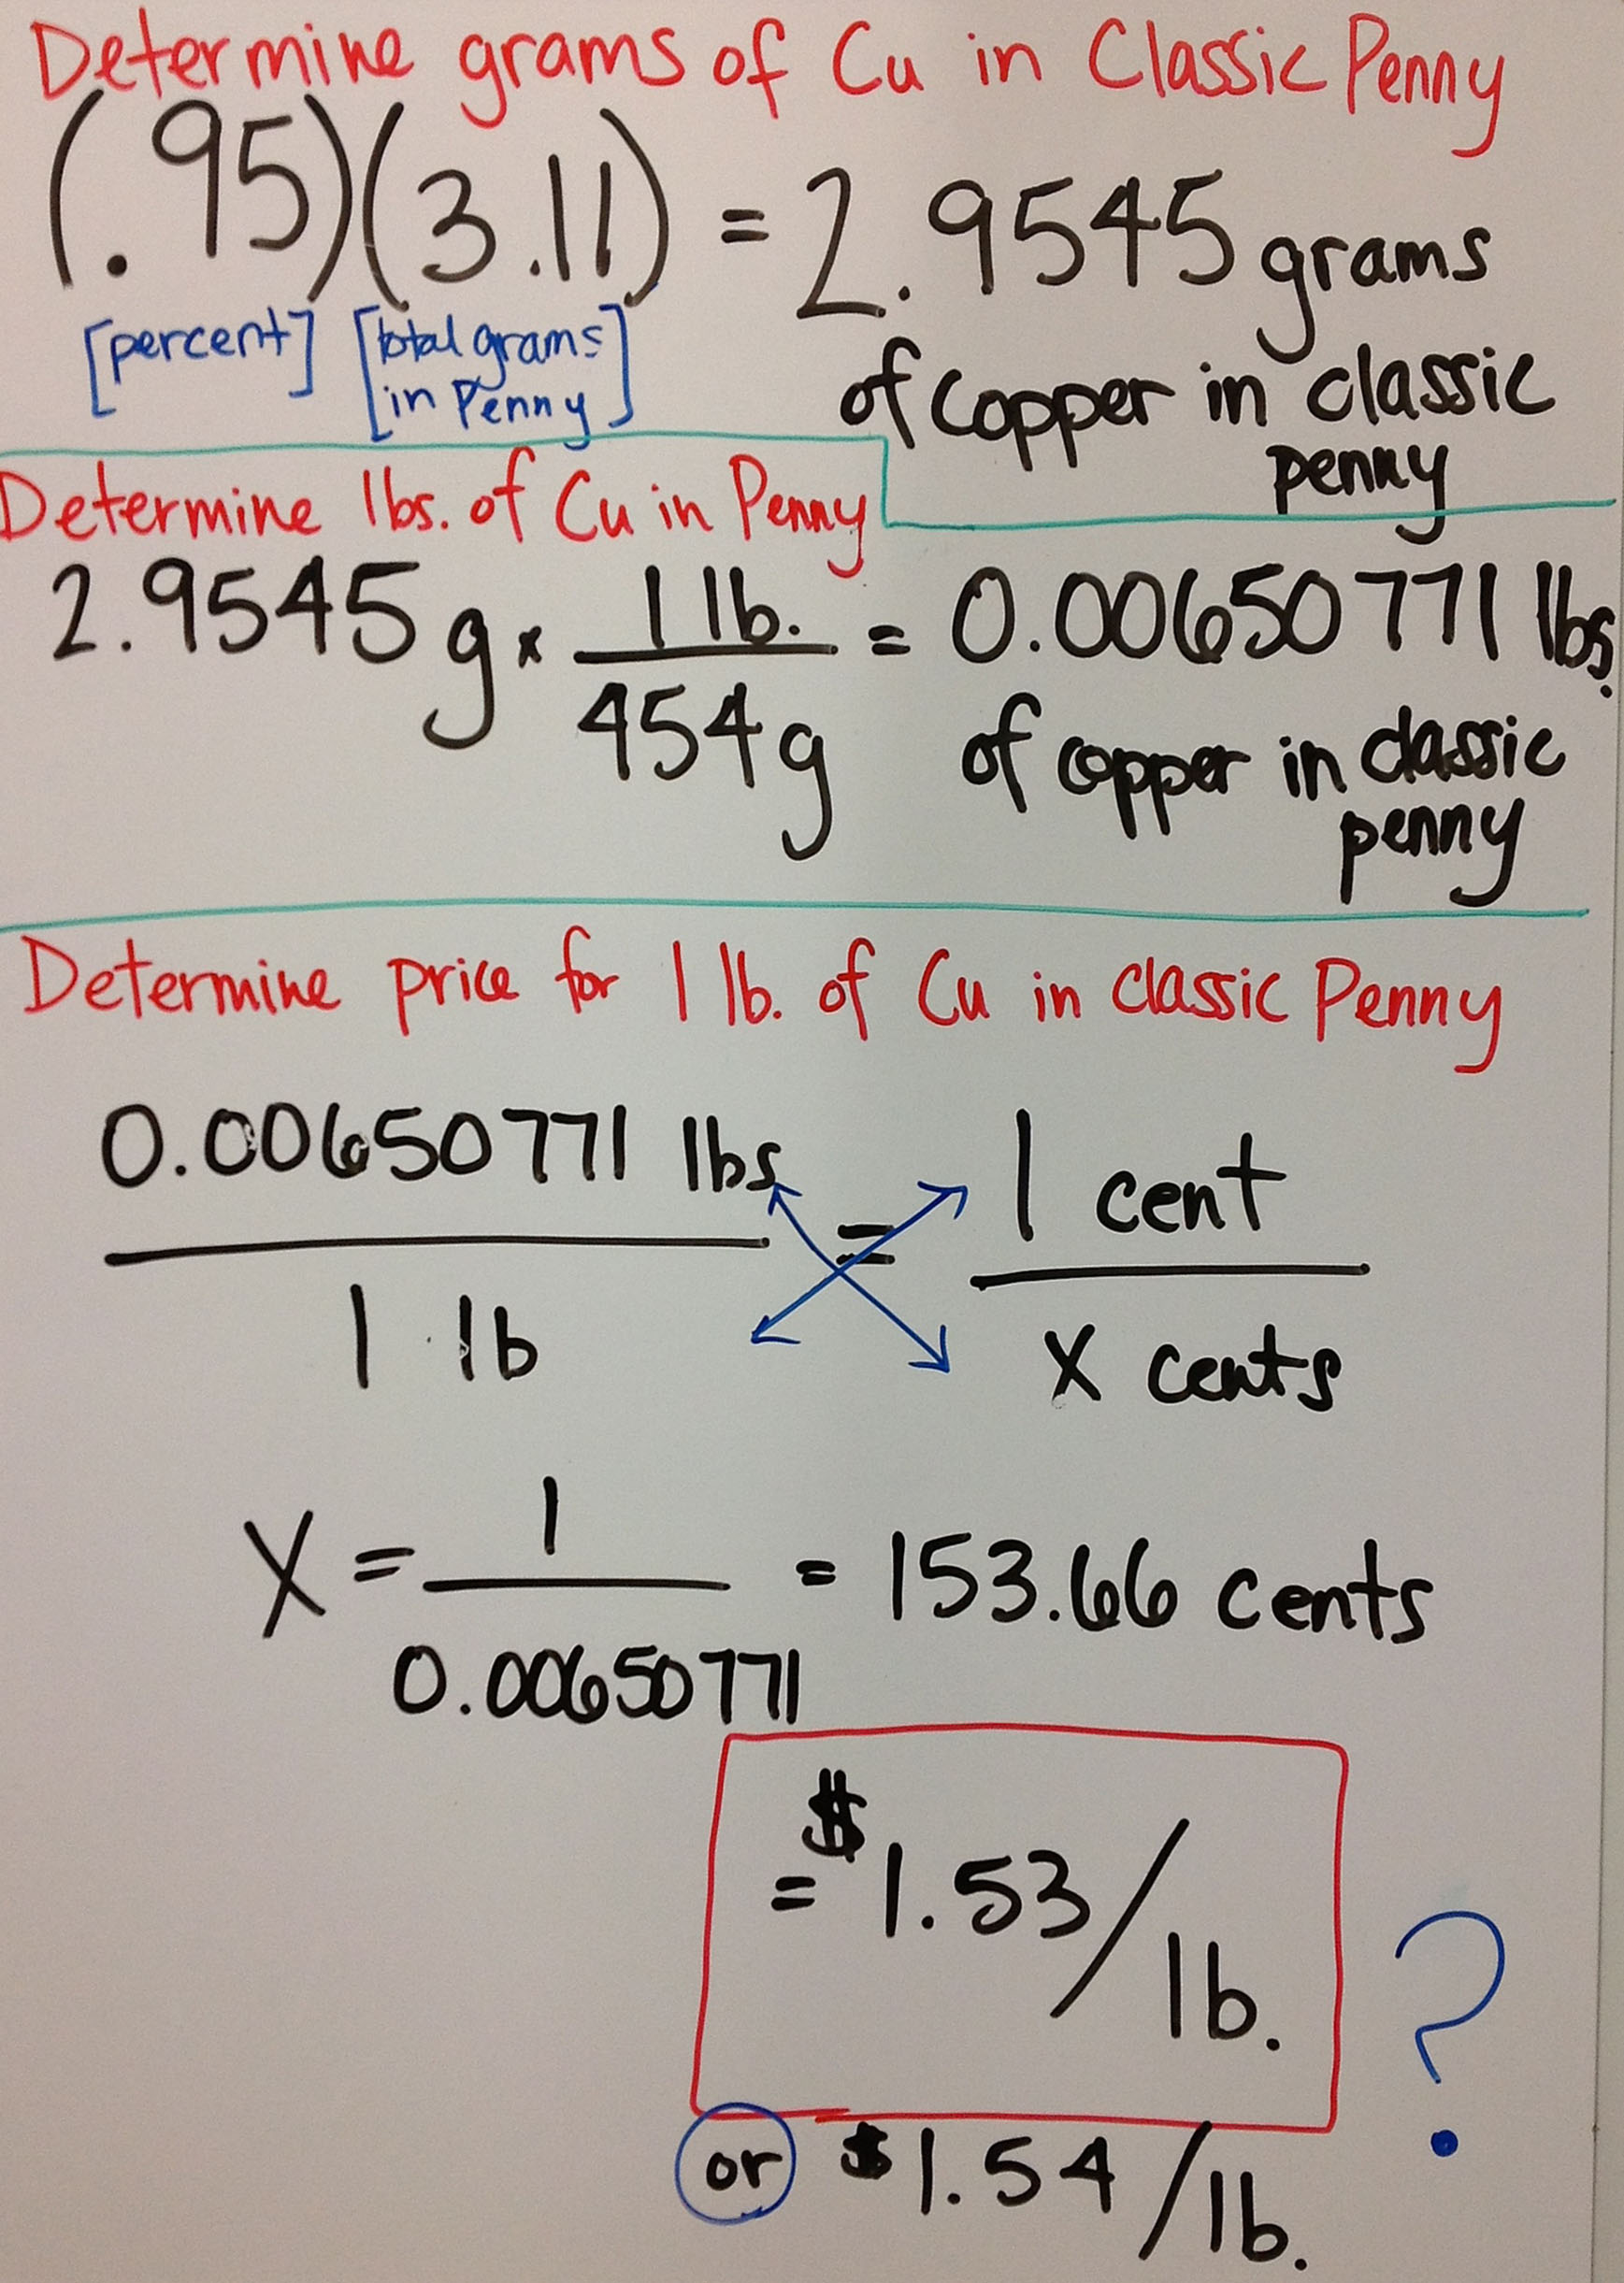 Determine grams of Cu in Classic Penny
(.95)(3.11) = 2.9545 grams
[percent] [total grams
in Penny]
of copper in classic
penny
Determine lbs. of Cu in Penny
2.9545 g x 1 lb. = 0.00650771 lbs.
454 g
of copper in classic
penny
Determine price for 1 lb. of Cu in classic Penny
0.00650771 lbs = 1 cent
1 lb x cents
X = 1 = 153.66 cents
0.00650771
= $1.53/lb.
?
or $1.54/lb.